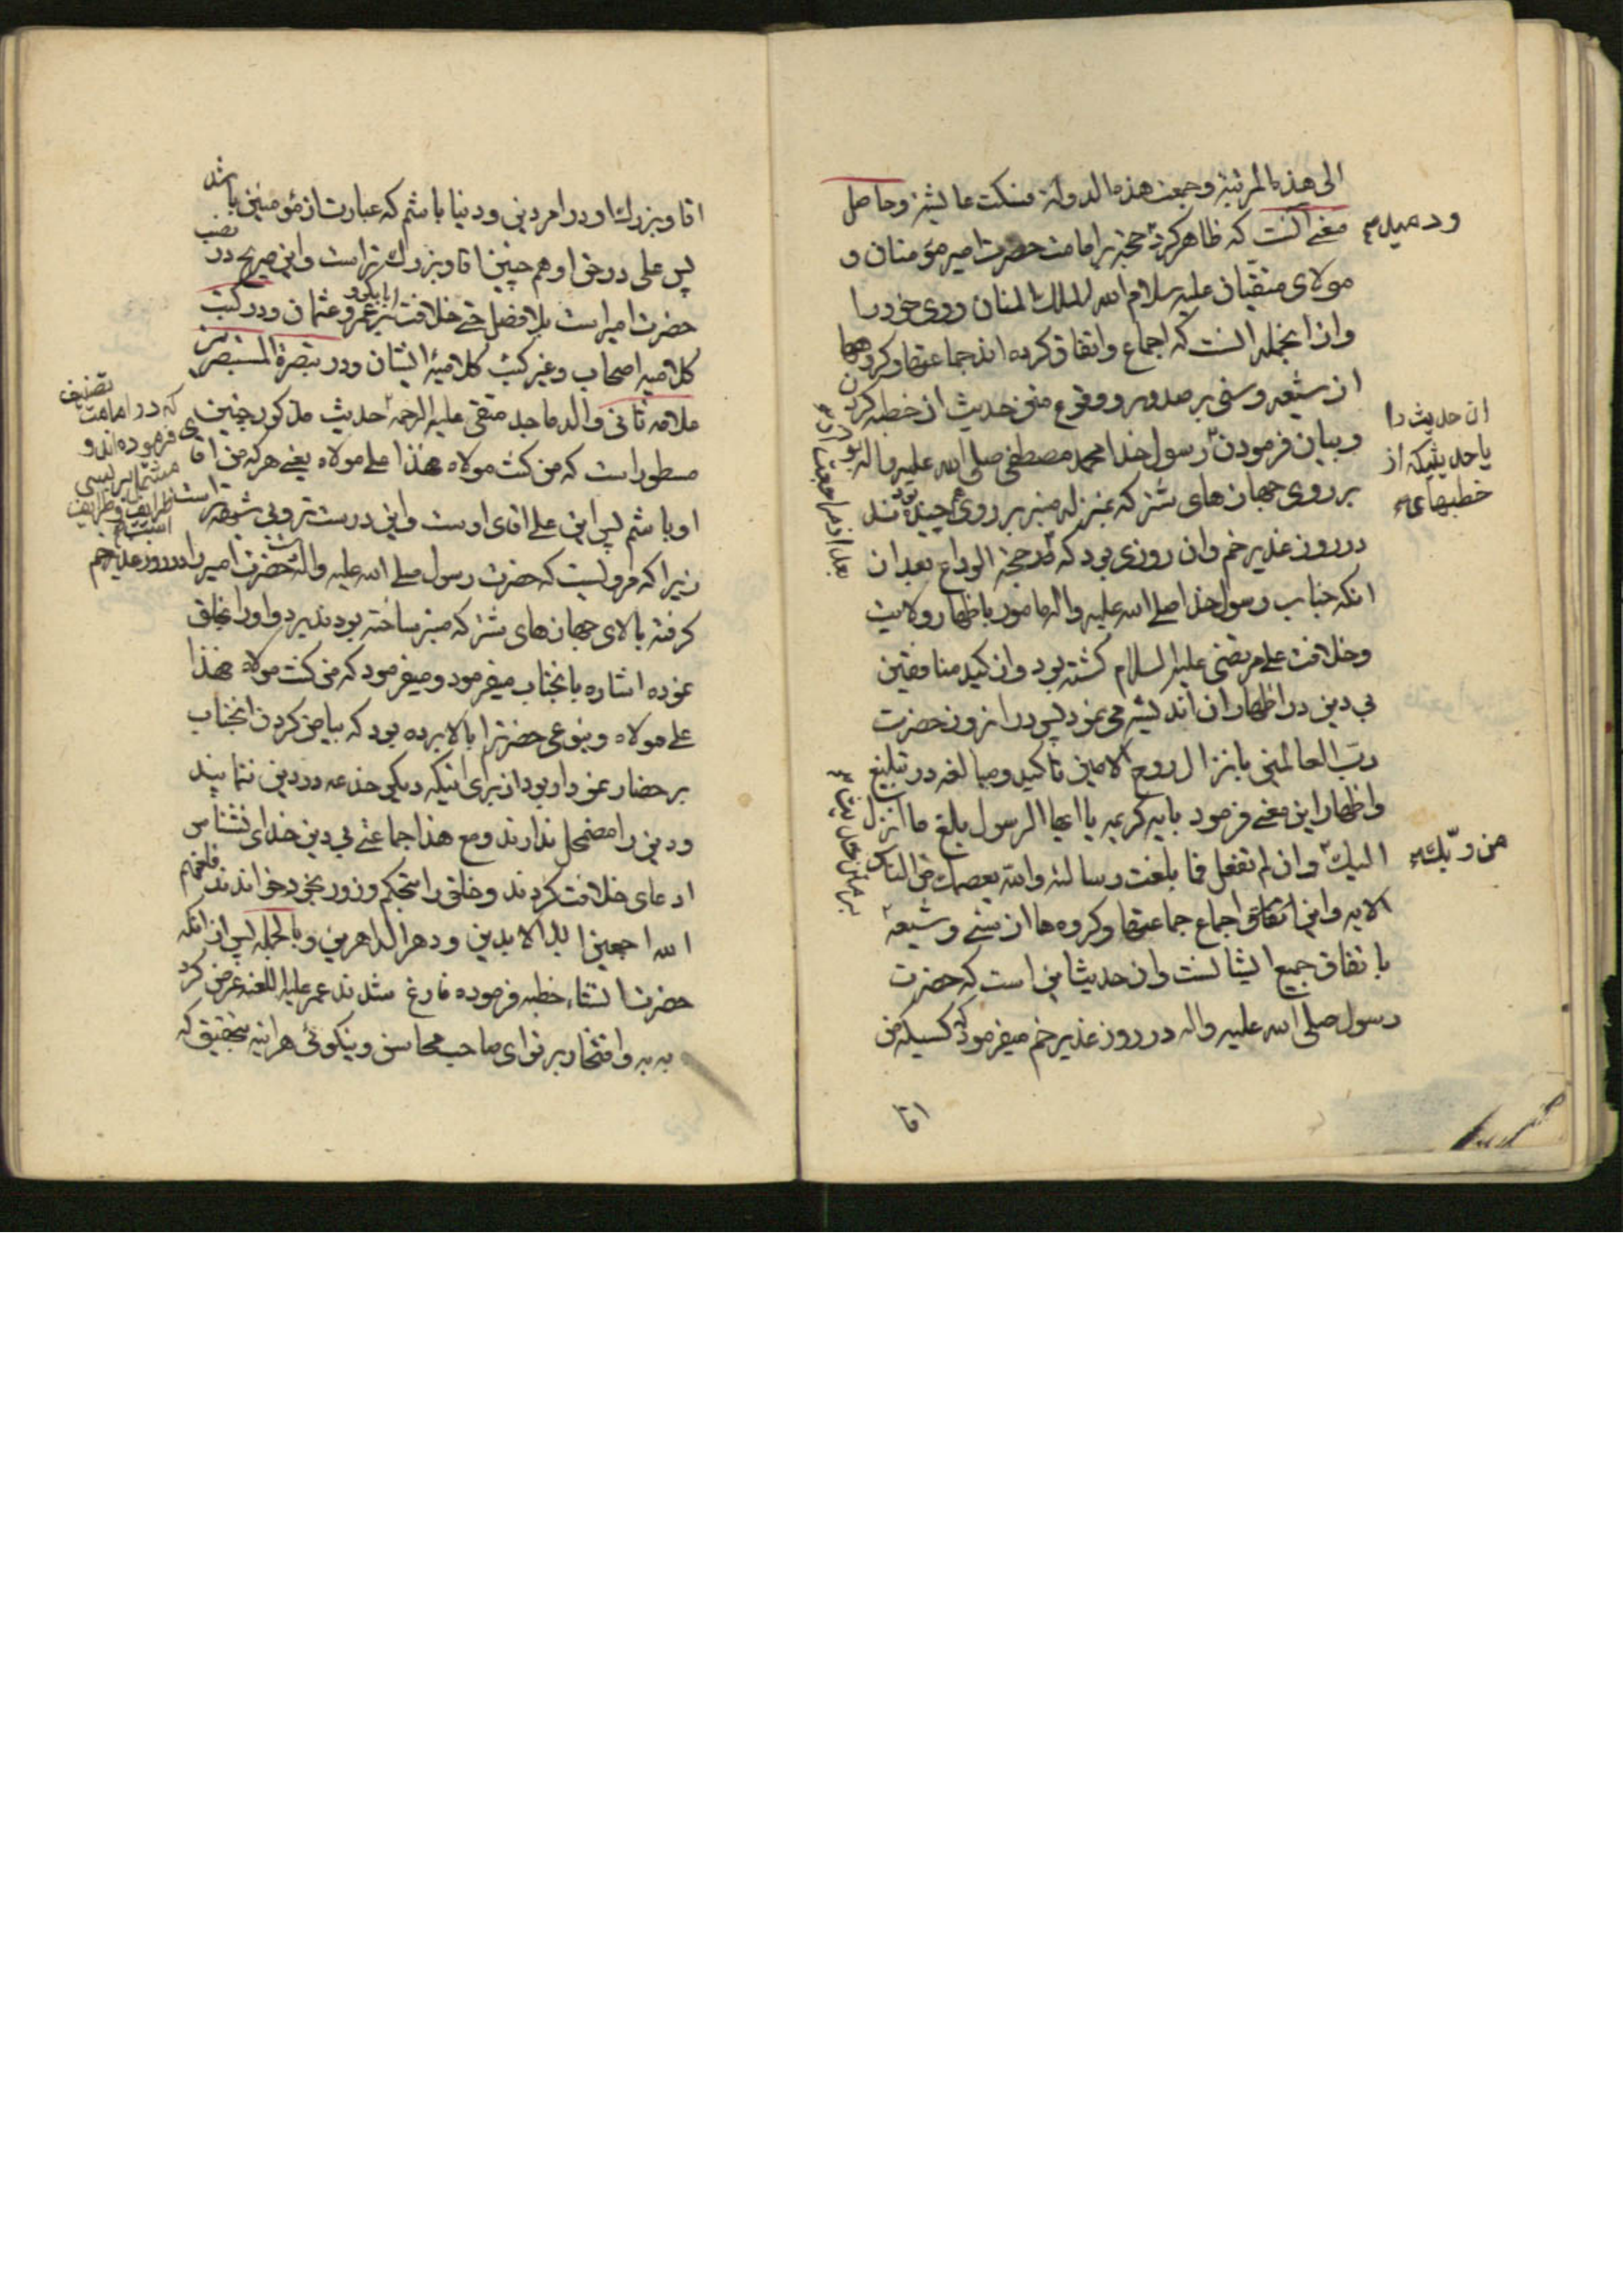 الی هذه المرتبة وجمعت هذه الدولة فسکت عایشة وحاصل
معنی آنست که ظاهر کرد حجة بر امامت حضرت امیر مؤمنان و
ود میدم
مولای متقیان علیه سلام الله الملک المنان روی خود را
واز انجمله آنست که اجماع واتفاق کرده اند جماعتها وکروهها
از شیعه وسنی بر صدور ووقوع متن حدیث از خطبه کردن
وبیان فرمودن رسول خدا محمد مصطفی صلی الله علیه واله
ان حدیث را
یا حدیثیکه از
خطبهای
بر روی جهازهای شتر که بمنزله منبر بر روی هم چیده بودند
در روز غدیر خم وان روزی بود که در حجة الوداع بعد از
انکه جناب رسول خدا صلی الله علیه واله مامور باظهار ولایت
وخلافت علی مرتضی علیه السلام کشته بود واز کید منافقین
بی دین در اظهار ان اندیشه می نمود پس در انروز حضرت
رب العالمین بانزال روح الامین تاکید ومبالغه در تبلیغ
واظهار این معنی فرمود بایه کریمه یا ایها الرسول بلغ ما انزل
الیک وان لم تفعل فما بلغت رسالته والله یعصمک من الناس
من ربّک
الایه واین اتفاق واجماع جماعتها وکروه ها از سنی وشیعه
باتفاق جمیع ایشانست وان حدیث این است که حضرت
رسول صلی الله علیه واله در روز غدیر خم میفرمود که کسیکه من
اقا
اقا وبزرك او در امر دین ودنیا باشم که عبارت از مؤمنین باشد
پس علی در حق او هم چنین اقا وبزرك تر است واین صریح در نصب
حضرت امیر است بلا فصل حتی خلافت ابابکر و عمر وعثمان ودر کتب
کلامیه اصحاب وغیر کتب کلامیه ایشان ودر تبصرة المستبصرین
تصنیف
علامه ثانی والد ماجد متقی علیه الرحمه حدیث مذکور چنین
که در امامت
فرموده اند و
مسطور است که من کنت مولاه فهذا علی مولاه یعنی هر که من اقا
او باشم پس این علی اقای اوست واین درست تر وبی شبهه تر است
زیرا که مرویست که حضرت رسول صلی الله علیه واله دست حضرت امیر را در روز غدیر خم
کرفته بالای جهازهای شتر که منبر ساخته بودند برد واورا بخلق
نموده اشاره بانجناب میفرمود ومیفرمود که من کنت مولاه فهذا
علی مولاه وبنوعی حضرترا بالا برده بود که بیاض کردن انجناب
بر حضار نمودار بود از برای اینکه دیکر خدعه در دین ننمایند
ودین را مضمحل ندارند ومع هذا جماعتی بی دین خدای نشناس
ادعای خلافت کردند وخلق را بتحکم وزور بخود خواندند فلعنهم
الله اجمعین ابد الابدین ودهر الداهرین وبالجمله پس از انکه
حضرت انشاء خطبه فرموده فارغ شدند عمر علیه اللعنه عرض کرد
به به وافتخار بر تو ای صاحب محاسن ونیکوئی هراینه بتحقیق که